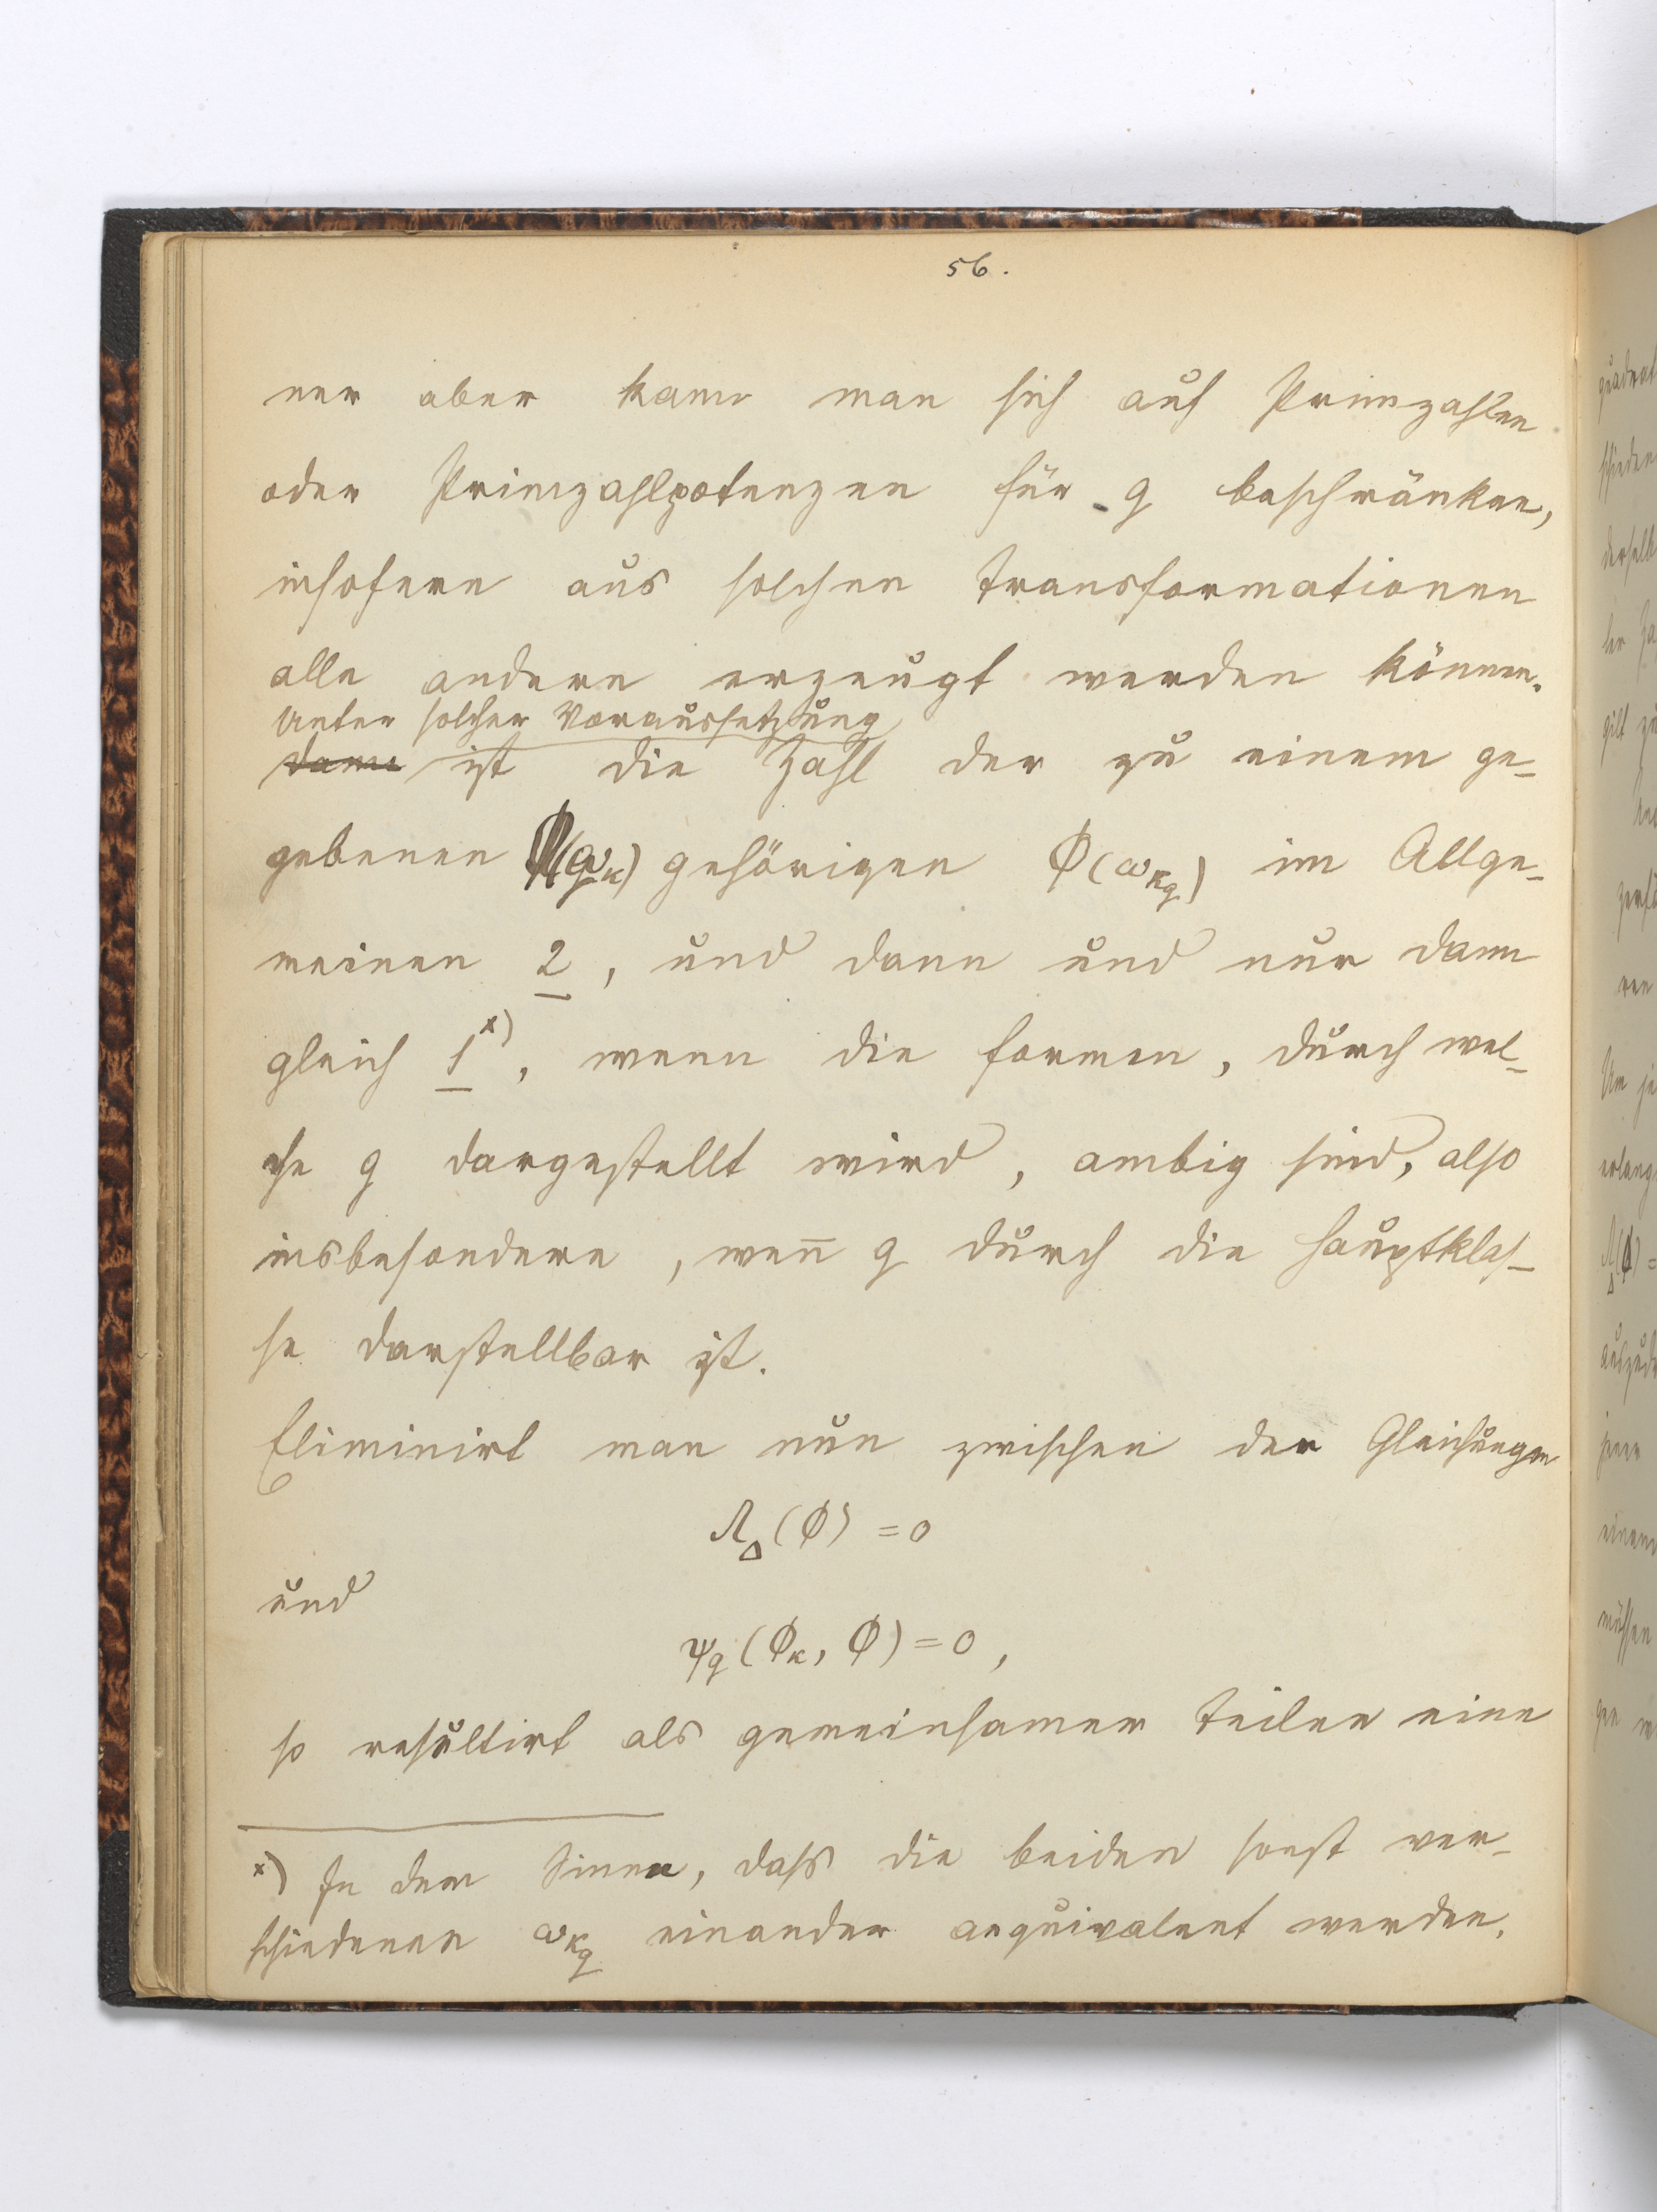 56.
ner aber kann man sich auf Primzahlen
oder Primzahlpotenzen für q beschränken,
insofern aus solchen Transformationen
alle andern erzeugt werden können.
Unter solcher Voraussetzung
dann ist die Zahl der zu einem ge-
gebenen ϕ(ω_κ) gehörigen ϕ(ω_{κ_q}) im Allge-
meinen 2, und dann und nur dann
gleich 1 ˣ⁾, wenn die Formen, durch wel-
che q dargestellt wird, ambig sind, also
insbesondere, wen̅ q durch die Hauptklas-
se darstellbar ist.
Eliminirt man nun zwischen den Gleichungen
Λ_Δ(ϕ) = 0
und
ψ_q(ϕ_κ, ϕ) = 0,
so resultirt als gemeinsamer Teiler eine
ˣ⁾ In dem Sinne, dass die beiden sonst ver-
schiedenen ω_{κ_q} einander aequivalent werden.